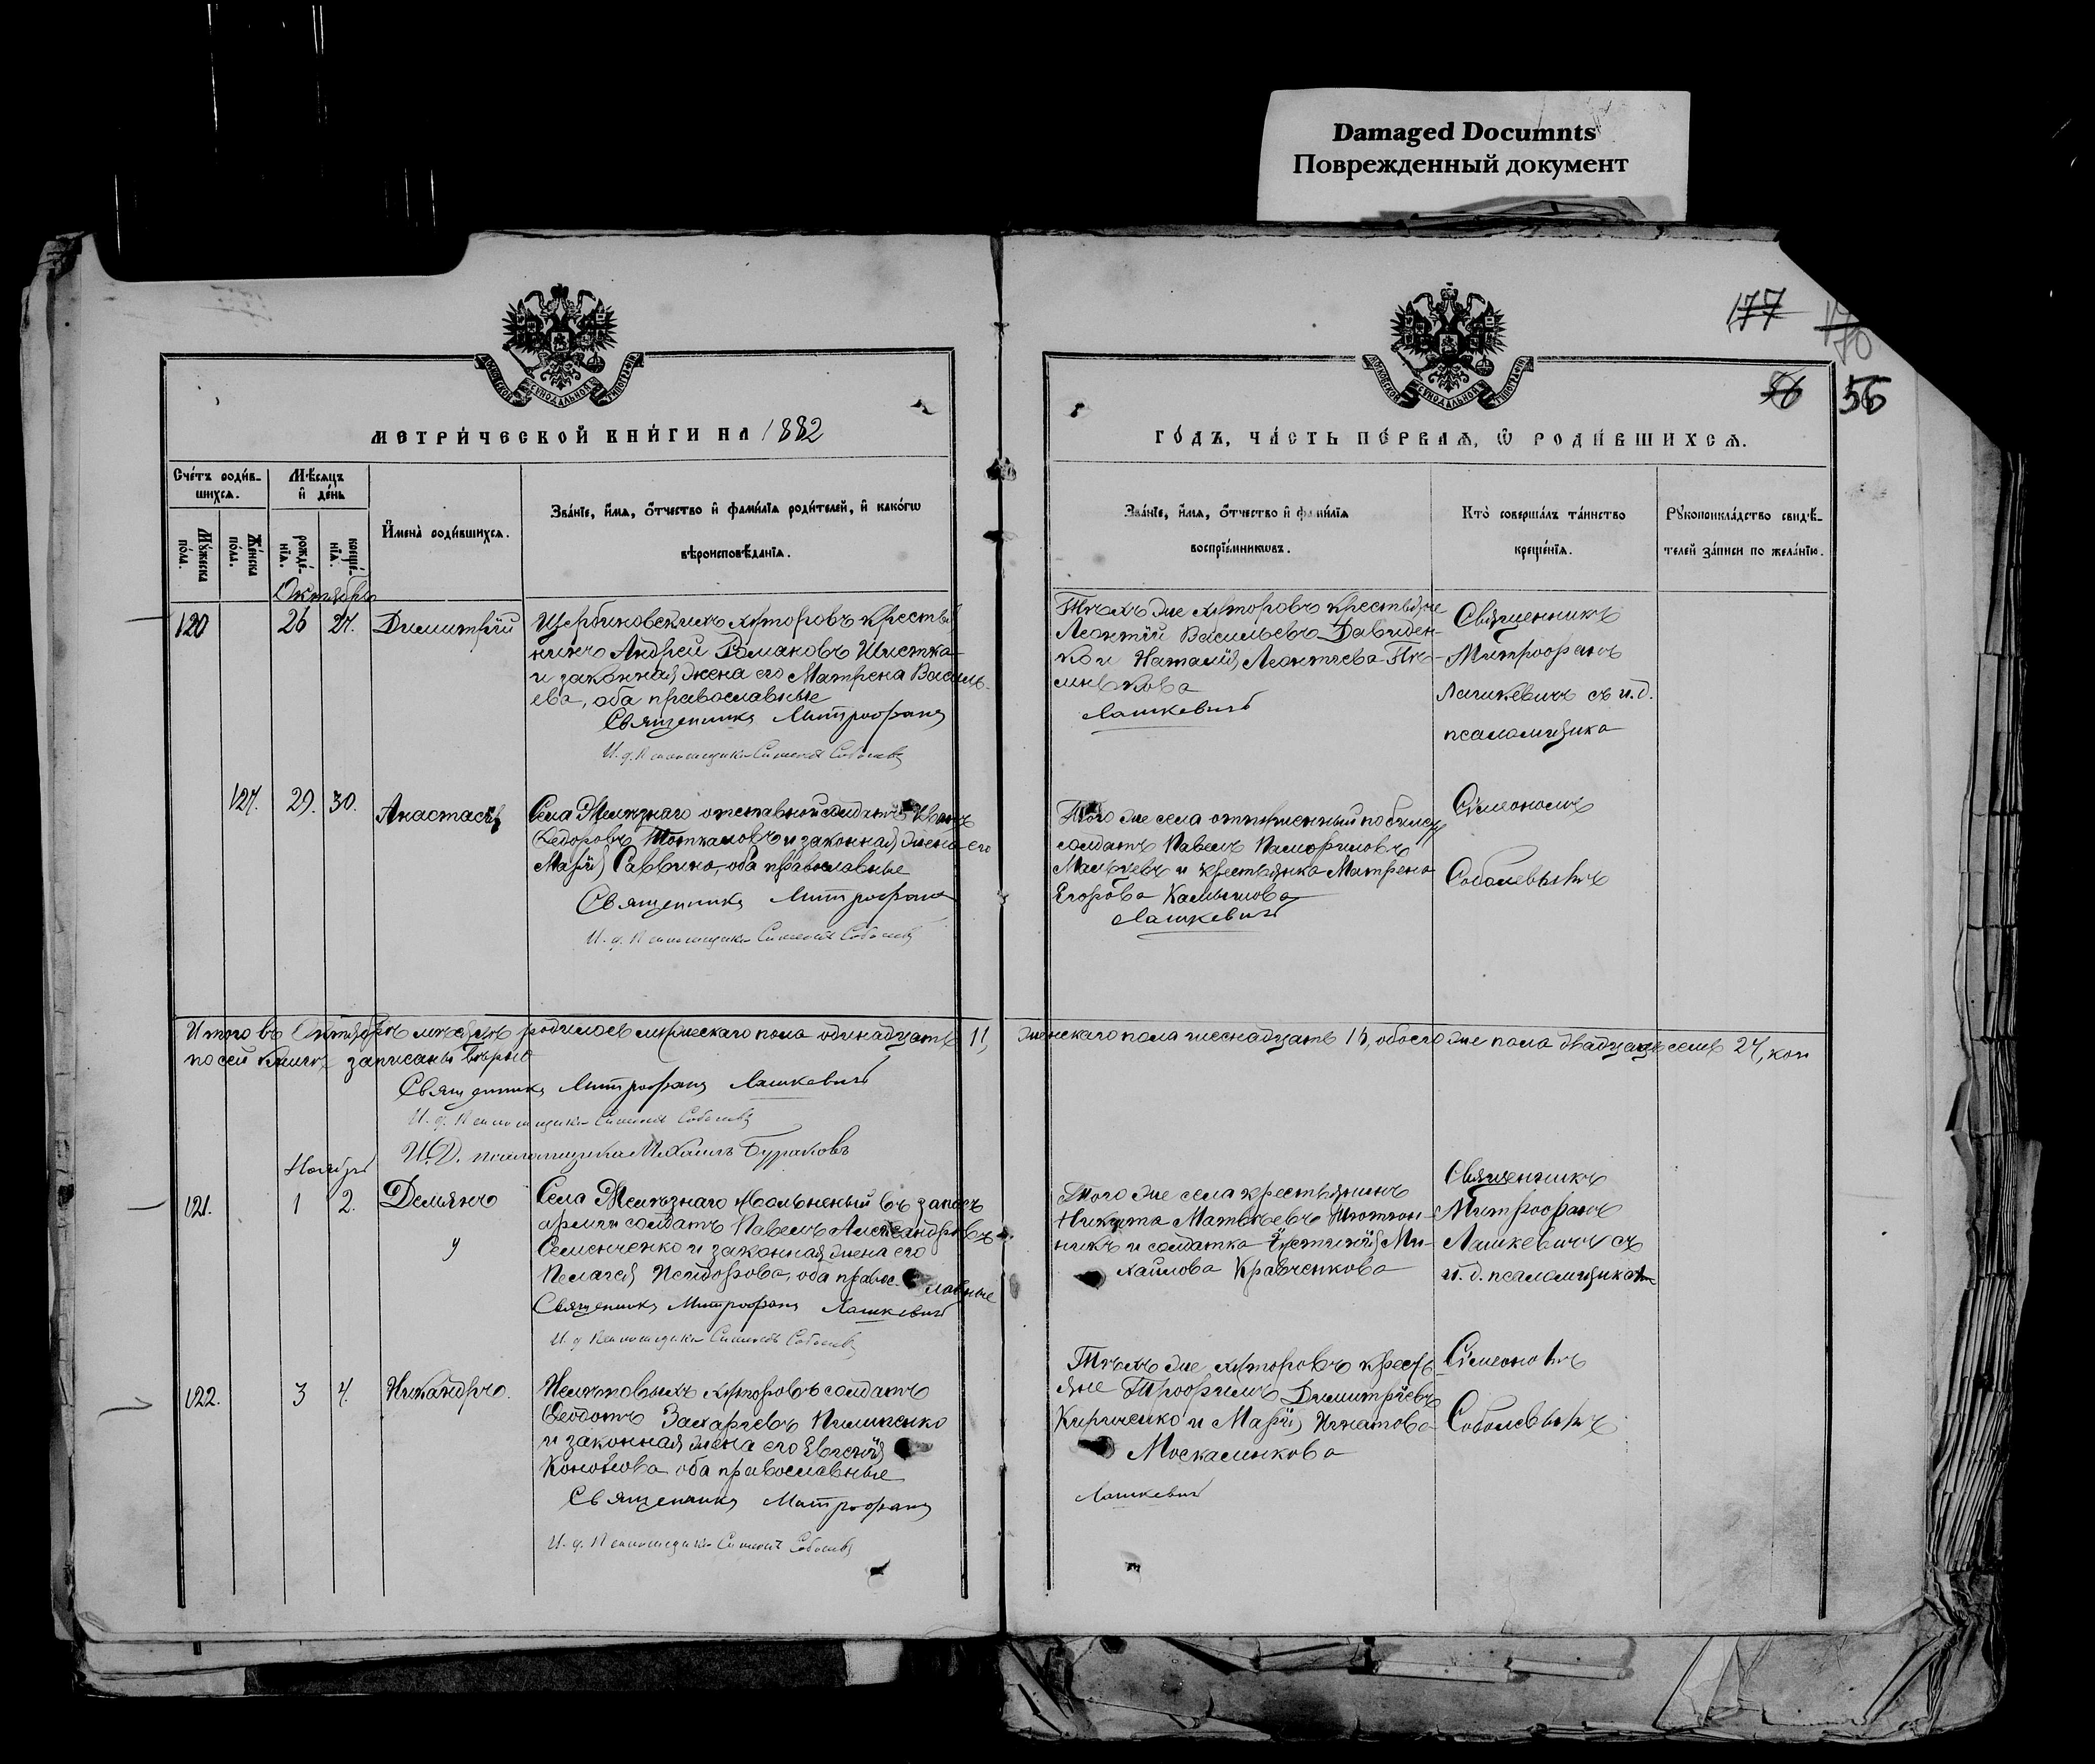 Damaged Documnts
Поврежденный документ
177
56 56
МОСКОВСКОЙ СѴНОДАЛЬНОЙ ТИПОГРАФІИ
МОСКОВСКОЙ СѴНОДАЛЬНОЙ ТИПОГРАФІИ
МЕТРИ́ЧЕСКОЙ КНИ́ГИ НА 1882
ГО́ДЪ, ЧА́СТЬ ПЕ́РВАѦ, Ѡ҆ РОДИ́ВШИХСѦ.
Сче́тъ роди́в-
шихсѧ.
Мѣ́сѧцъ
и҆ де́нь
Му́жеска
по́ла.
Же́нска
по́ла.
рожде́-
нїѧ.
креще́-
нїѧ.
И҆мена̀ роди́вшихсѧ.
Зва́нїе, и҆́мѧ, ѻ҆́тчество и҆ фами́лїѧ роди́телей, и҆ како́гѡ
вѣроисповѣ́данїѧ.
Зва́нїе, и҆́мѧ, ѻ҆́тчество и҆ фами́лїѧ
воспрїе́мникѡвъ.
Кто̀ соверша́лъ та́инство
креще́нїѧ.
Рꙋкоприкла́дство свидѣ́-
телей за́писи по жела́нїю.
Октября
120 26 27. Димитрій
Щербиновскихъ хуторовъ крестья
нинъ Андрей Романовъ
и законная жена его Матрена Василь-
ева, оба православные
Священникъ Митрофанъ
И. д. Псаломщика Симеонъ
Тѣхъ же хуторовъ крестьяне
Леонтій Васильевъ Давиден-
ко и Наталія Леонтьева
Лашкевичъ
Священникъ
Митрофанъ
Лашкевичъ съ и. д.
псаломщика
127. 29. 30. Анастасія
Села Желѣзнаго отставной солдатъ Иванъ
Ѳедоровъ и законная жена его
Марія Саввина, оба православные
Священникъ Митрофанъ
И. д. Псаломщика Симеонъ
Того же села отпускной по билету
солдатъ Павелъ Памфиловъ
Мальцевъ и крестьянка Матрена
Егорова Камышова
Лашкевичъ
Симеономъ
Соболевымъ
Итого въ Октябрѣ мѣсяцѣ родилось мужескаго пола одинадцать 11, женскаго пола шеснадцать 16, обоего же пола двадцать семь 27, кои
по сей книгѣ записаны вѣрно
Священникъ Митрофанъ Лашкевичъ
И. д. Псаломщика Симеонъ
И. Д. псаломщика Михаилъ Бураковъ
Ноябрь
121. 1 2. Демьянъ
у
Села Желѣзнаго уволенный въ запасъ
арміи солдатъ Павелъ Александровъ
Семенченко и законная жена его
Пелагея Исидорова, оба правос-
лавные
Священникъ Митрофанъ Лашкевичъ
И. д. Псаломщика Симеонъ
Того же села крестьянинъ
Никита Матвѣевъ
никъ и солдатка Ми-
хаилова Кравченкова
Священникъ
Митрофанъ
Лашкевичъ съ
и. д. псаломщикомъ
122. 3 4. Никандръ.
хуторовъ солдатъ
Ѳеодотъ Захаріевъ Пилипенко
и законная жена его Евгенія
Кононова оба православные
Священникъ Митрофанъ
И. д. Псаломщика Симеонъ
Тѣхъ же хуторовъ кресть-
яне Трофимъ Димитріевъ
Кириченко и Марія Игнатова
Москаленкова
Лашкевичъ
Симеономъ
Соболевымъ